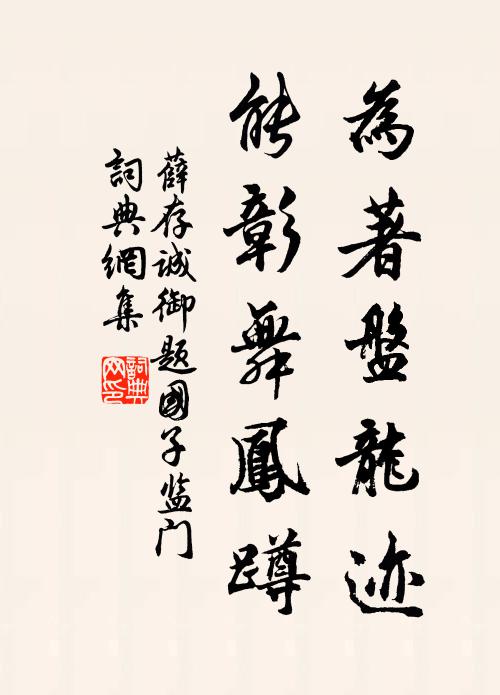 為著盤龍迹
能彰舞鳳蹲
薛存诚御题國子监门
詞典網集
詞典網印